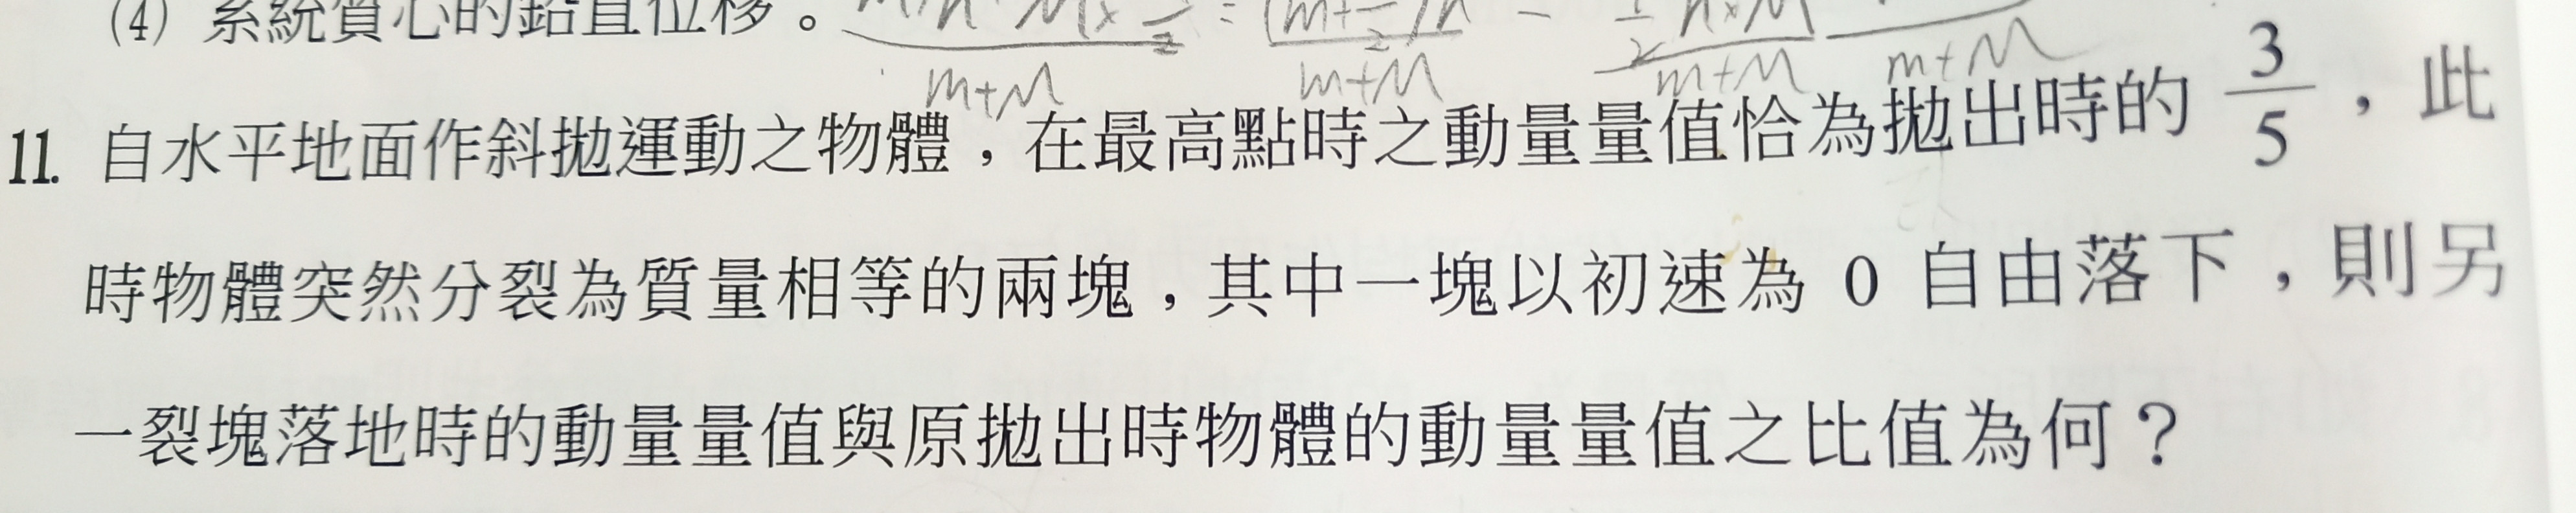 (4) 系統質心的鉛直位移。
m+M m+M m+M m+M
11. 自水平地面作斜拋運動之物體，在最高點時之動量量值恰為拋出時的 3/5，此
時物體突然分裂為質量相等的兩塊，其中一塊以初速為 0 自由落下，則另
一裂塊落地時的動量量值與原拋出時物體的動量量值之比值為何？